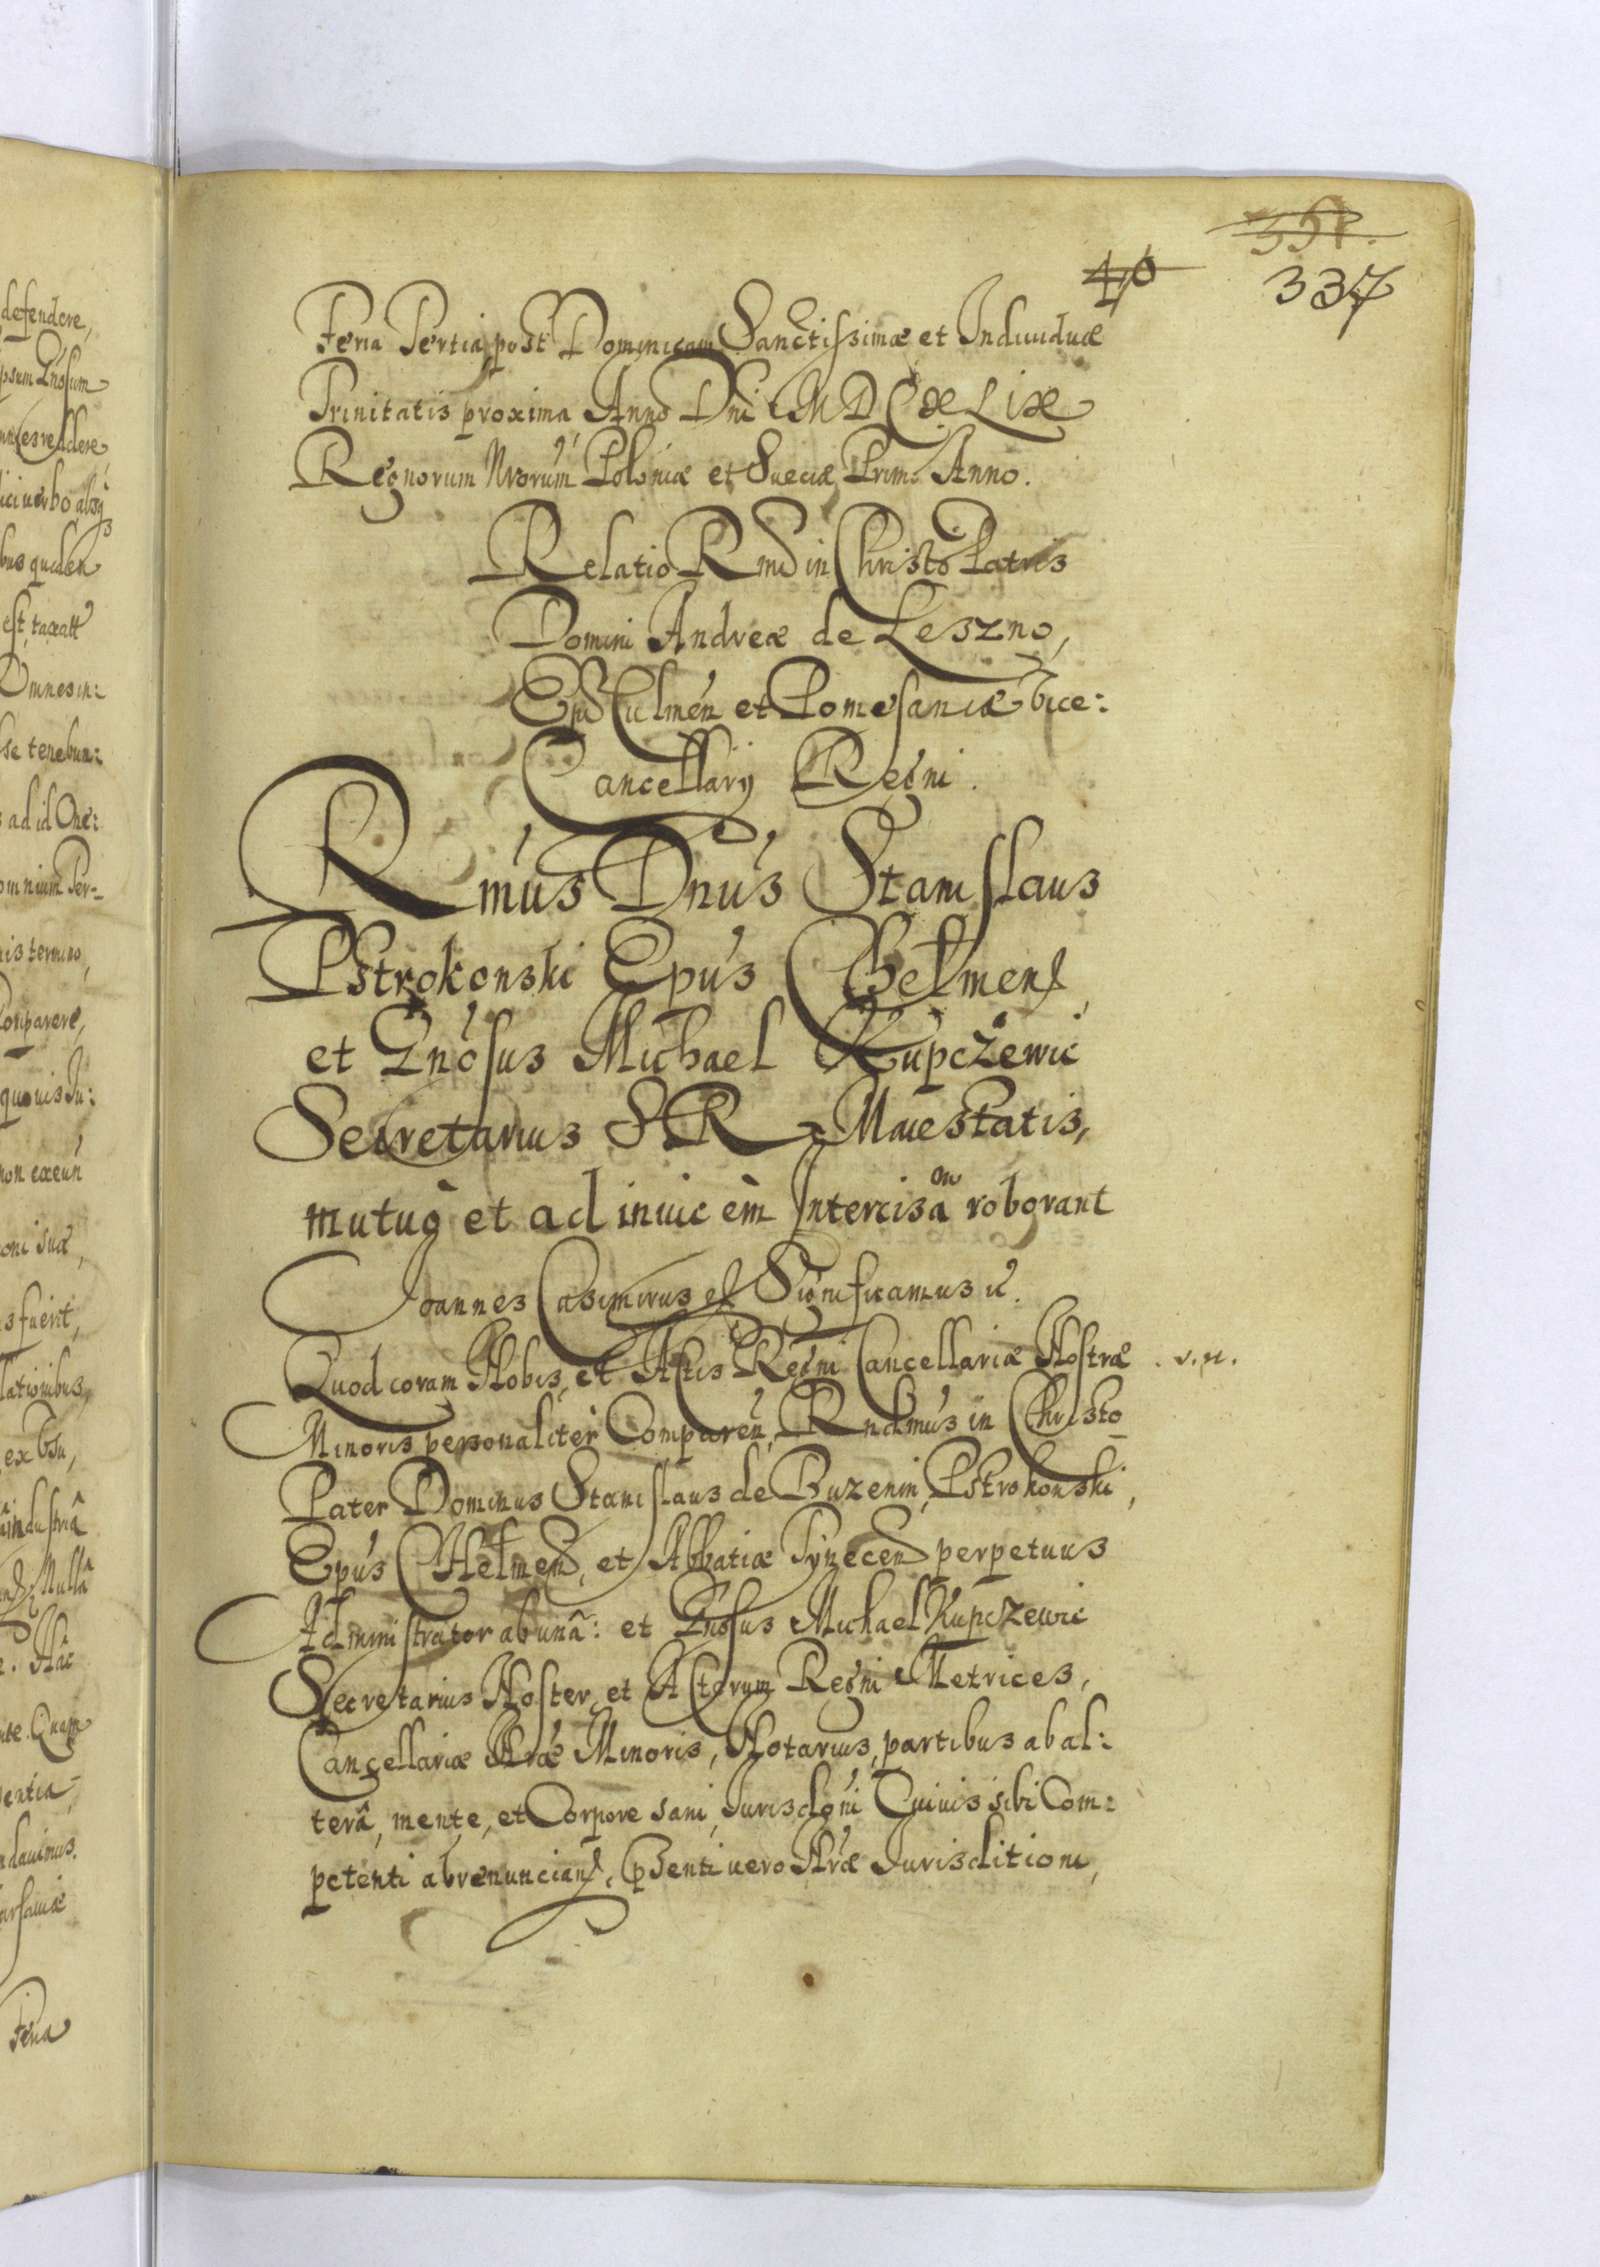 defendere,
ici verbo absq3
est, taxatt
Omnes in:
se tenebun:
s ad id One:
omnium Per-
nis termino,
Comparere,
quovis Iu:
non exeun̄
oni suæ,
s fuerit,
lationibus,
ex Vsu,
industriâ
Nullâ
Hac
Quam
entia,
ndavimus.
arsaviæ
Feria
351.
40
337
Feria Tertia post Dominicam Sanctissimæ et Individuæ
Trinitatis proxima Anno Dni MDCXLIX
Regnorum Nrorum Poloniæ et Sueciæ Primo Anno.
Relatio Rmd in Christo Patris
Domini Andreæ de Leszno,
Epi Culmen̄ et Pomesaniæ Vice:
Cancellarij Regni.
Rmus Dnus Stanislaus
Pstrokonski Epus Chełmens,
et Gnosus Michael Kupczewic
Secretarius S R Maiestatis,
mutuò et ad invicèm Intercisam roborant
Joannes Casimirus es Significamus ic.
Quod coram Nobis, et Actis Regni Cancellariæ Nostræ . v. n.
Minoris personalitèr Comparen̄, Rndmus in Christo
Pater Dominus Stanislaus de Buzenin, Pstrokonski,
Epus Chełmens, et Abbatiæ Tynecens perpetuus
Administrator ab unâ: et Gnosus Michael Kupczewic
Secretarius Noster, et Actorum Regni Metrices,
Cancellariæ Nræ Minoris, Notarius, partibus ab al:
terâ, mente, et Corpore sani, Jurisdoni Cuivis sibi Com:
petenti abrenuncians, Psenti vero Nræ Jurisditioni,